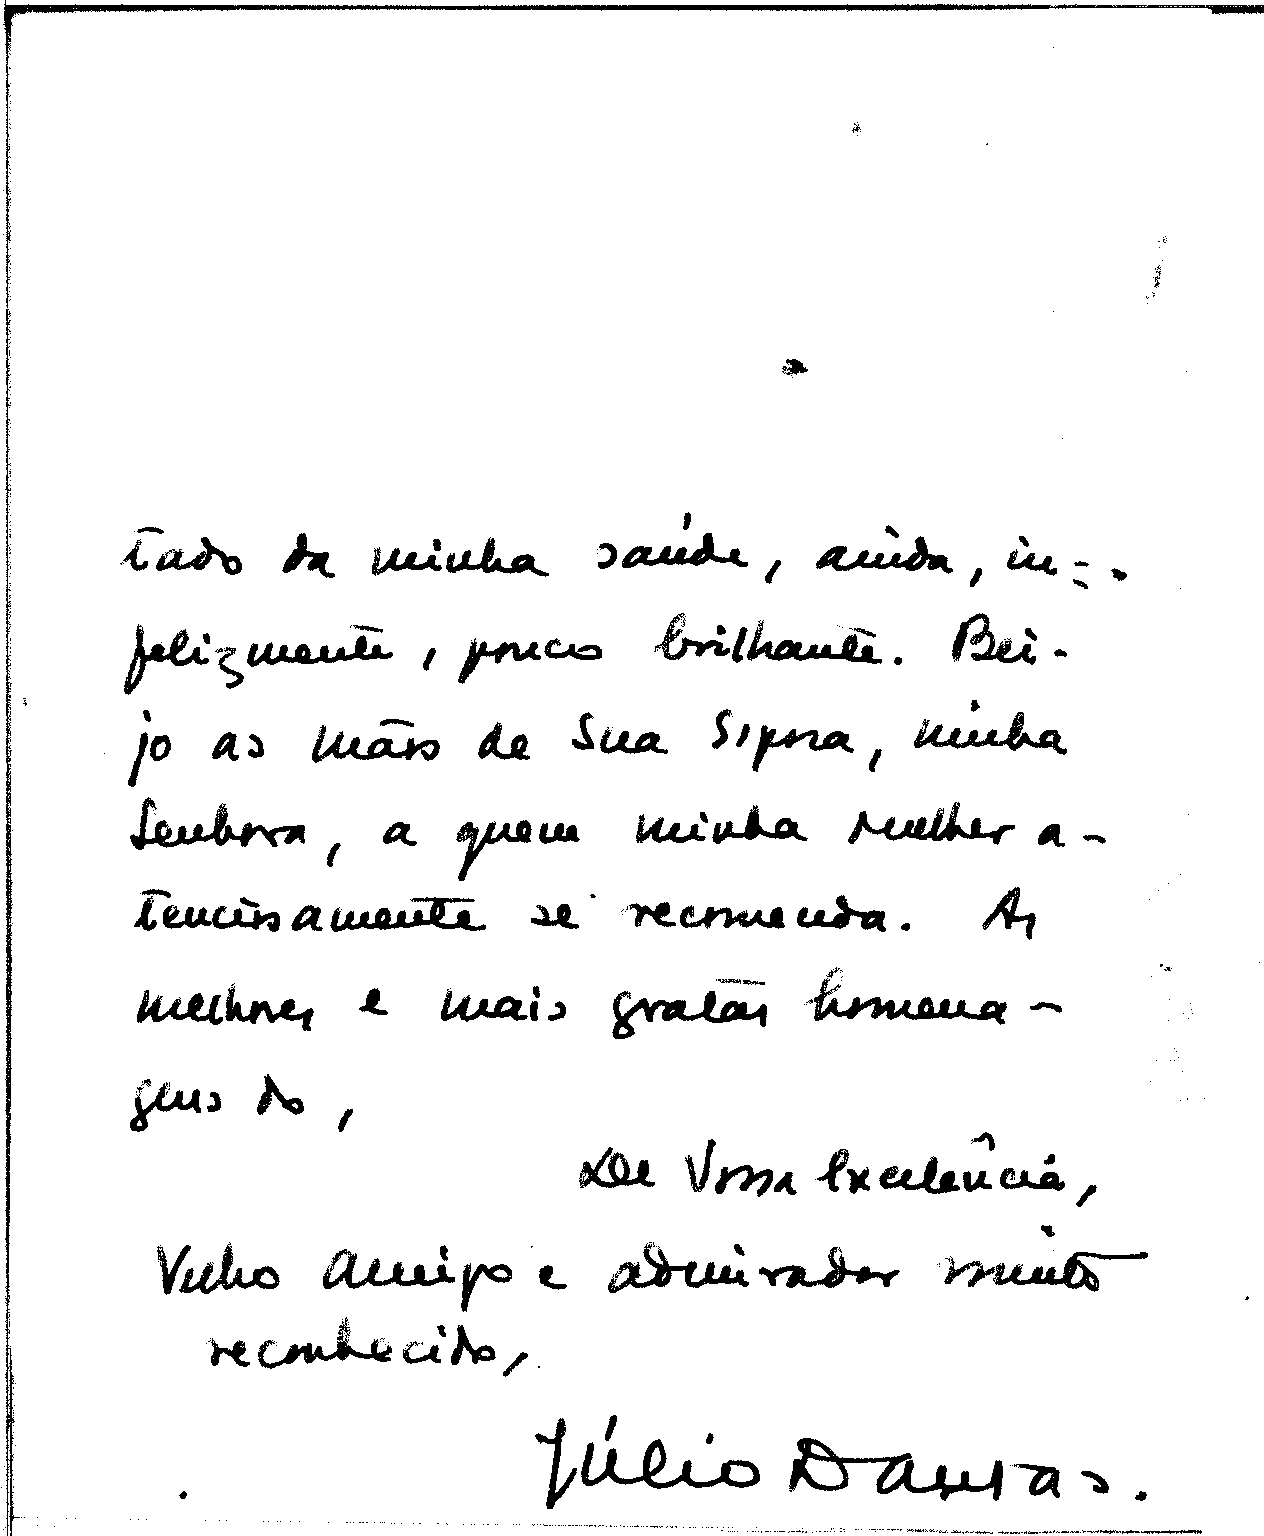 tado da minha saúde, ainda, in=
felizmente, pouco brilhante. Bei-
jo as mãos de Sua Signora, minha
Senhora, a quem minha mulher a-
tenciosamente se recomenda. As
melhores e mais gratas homena-
gens do,
De Vossa Excelência,
Velho amigo e admirador muito
reconhecido,
Júlio Dantas.